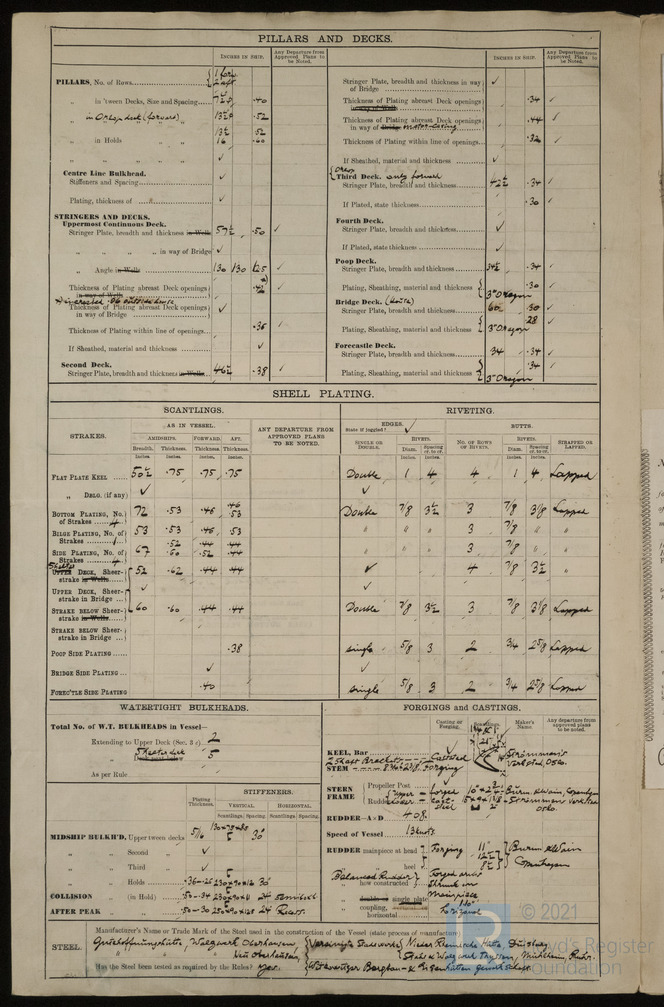 PILLARS AND DECKS.
INCHES IN SHIP.
Any Departure from Approved Plans to be Noted.
INCHES IN SHIP.
Any Departure from Approved Plans to be Noted.
PILLARS, No. of Rows
„ in 'tween Decks, Size and Spacing ·40
„ in Orlop deck (forward) ·52
·52
„ in Holds „ „ 16 ·60
„ „ „ „ ✓
Centre Line Bulkhead.
Stiffeners and Spacing ✓
Plating, thickness of ✓
STRINGERS AND DECKS.
Uppermost Continuous Deck.
Stringer Plate, breadth and thickness in Wells 57½ ·50 ✓
„ „ „ „ in way of Bridge ✓
„ Angle in Wells 130 130 ✓
Thickness of Plating abreast Deck openings in way of Wells ✓
Thickness of Plating abreast Deck openings in way of Bridge ✓
Thickness of Plating within line of openings ·36 ✓
If Sheathed, material and thickness ✓
Second Deck.
Stringer Plate, breadth and thickness in Wells 46½ ·38 ✓
Stringer Plate, breadth and thickness in way of Bridge ✓
Thickness of Plating abreast Deck openings in way of Wells ·34 ✓
Thickness of Plating abreast Deck openings in way of Bridge motor casing ·44 ✓
Thickness of Plating within line of openings ·32 ✓
If Sheathed, material and thickness ✓
Third Deck. only forward
Stringer Plate, breadth and thickness 42½ ·34 ✓
If Plated, state thickness ·30 ✓
Fourth Deck.
Stringer Plate, breadth and thickness ✓
If Plated, state thickness ✓
Poop Deck.
Stringer Plate, breadth and thickness 34½ ·34 ✓
Plating, Sheathing, material and thickness ·30 ✓
3" Oregon
Bridge Deck. (House)
Stringer Plate, breadth and thickness 60 ·30 ✓
Plating, Sheathing, material and thickness 28 ✓
3" Oregon
Forecastle Deck.
Stringer Plate, breadth and thickness 34 ·34 ✓
Plating, Sheathing, material and thickness ·34 ✓
3" Oregon
SHELL PLATING.
SCANTLINGS.
RIVETING.
STRAKES.
AS IN VESSEL.
AMIDSHIPS. FORWARD. AFT.
Breadth. Thickness. Thickness. Thickness.
Inches. Inches. Inches. Inches.
ANY DEPARTURE FROM APPROVED PLANS TO BE NOTED.
EDGES. State if joggled? ✓
BUTTS.
SINGLE OR DOUBLE.
RIVETS.
Diam. Spacing cr. to cr.
Inches. Inches.
NO. OF ROWS OF RIVETS.
RIVETS.
Diam. Spacing cr. to cr.
Inches. Inches.
STRAPPED OR LAPPED.
FLAT PLATE KEEL 50½ ·75 ·75 ·75 Double 1 4 4 1 4 Lapped
„ DBLG. (if any) ✓ ✓
BOTTOM PLATING, No. of Strakes 4 72 ·53 ·46 ·46 ·53 Double 7/8 3½ 3 7/8 3⅛ Lapped
BILGE PLATING, No. of Strakes 1 53 ·53 ·46 ·53 „ „ „ 3 7/8 „ „
SIDE PLATING, No. of Strakes 4 67 ·52 ·60 ·44 ·52 ·44 ·44 „ „ „ 3 7/8 „ „
Shelter
UPPER DECK, Sheer-strake in Wells 52 ·62 ·44 ·44 ✓ 4 7/8 3½ „
UPPER DECK, Sheer-strake in Bridge ✓ ✓
STRAKE BELOW SHEER-strake in Wells 60 ·60 ·44 ·44 Double 7/8 3½ 3 7/8 3⅛ Lapped
STRAKE BELOW SHEER-strake in Bridge
POOP SIDE PLATING ·38 single 5/8 3 2 3/4 2⅝ Lapped
BRIDGE SIDE PLATING ✓ ✓
FORE'C'TLE SIDE PLATING ·40 single 5/8 3 2 3/4 2⅝ Lapped
WATERTIGHT BULKHEADS.
Total No. of W.T. BULKHEADS in Vessel—
Extending to Upper Deck (Sec. 3 c) 2
„ Shelter deck 5
As per Rule
Plating Thickness.
STIFFENERS.
VERTICAL. HORIZONTAL.
Scantlings Spacing Scantlings Spacing
MIDSHIP BULKH'D, Upper tween decks 5/16 30"
„ „ Second „ ✓
„ „ Third „ ✓
„ „ Holds ·36-·25 230×90×12 30"
COLLISION „ (in Hold) ·50-·34 24
AFTER PEAK „ „ ·50-·30 24
FORGINGS and CASTINGS.
Casting or Forging.
Scantlings.
Maker's Name.
Any departure from approved plans to be noted.
KEEL, Bar ✓
2 Shaft Brackets Casted Strömmen's Verksted, Oslo.
STEM Forging
STERN FRAME
Propeller Post forged Burm. & Wain, Copenhg
Rudder „ upper lower cast steel Strömmen Verksted Oslo.
RUDDER—A×D 408
Speed of Vessel 13 knots
RUDDER mainpiece at head Forging 11" Burm. & Wain Copenhagen
„ „ heel
Balanced Rudder
„ how constructed Forged arms shrunk on mainpiece
„ double or single plate
„ coupling, vertical or horizontal horizontal
STEEL.
Manufacturer's Name or Trade Mark of the Steel used in the construction of the Vessel (state process of manufacture)
Gutehoffnungshütte, Walzwerk Oberhausen,
Neu Oberhausen,
Vereinigte Stahlwerke Nieder Rheinische Hütte Duisburg
Stahl & Walzwerk Thyssen, Mülheim, Ruhr.
Has the Steel been tested as required by the Rules? Yes. Witkowitzer Bergbau- & Eisenhütten Gewerkschaft.
© 2021
Lloyd's Register
Foundation